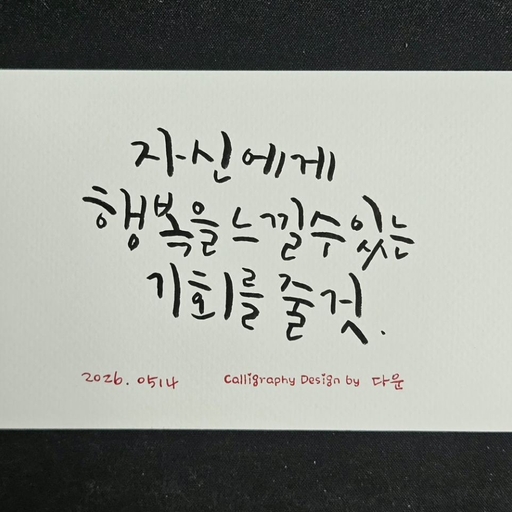 자신에게
행복을 느낄 수 있는
기회를 줄 것.
2026. 0514 Calligraphy Design by 다운